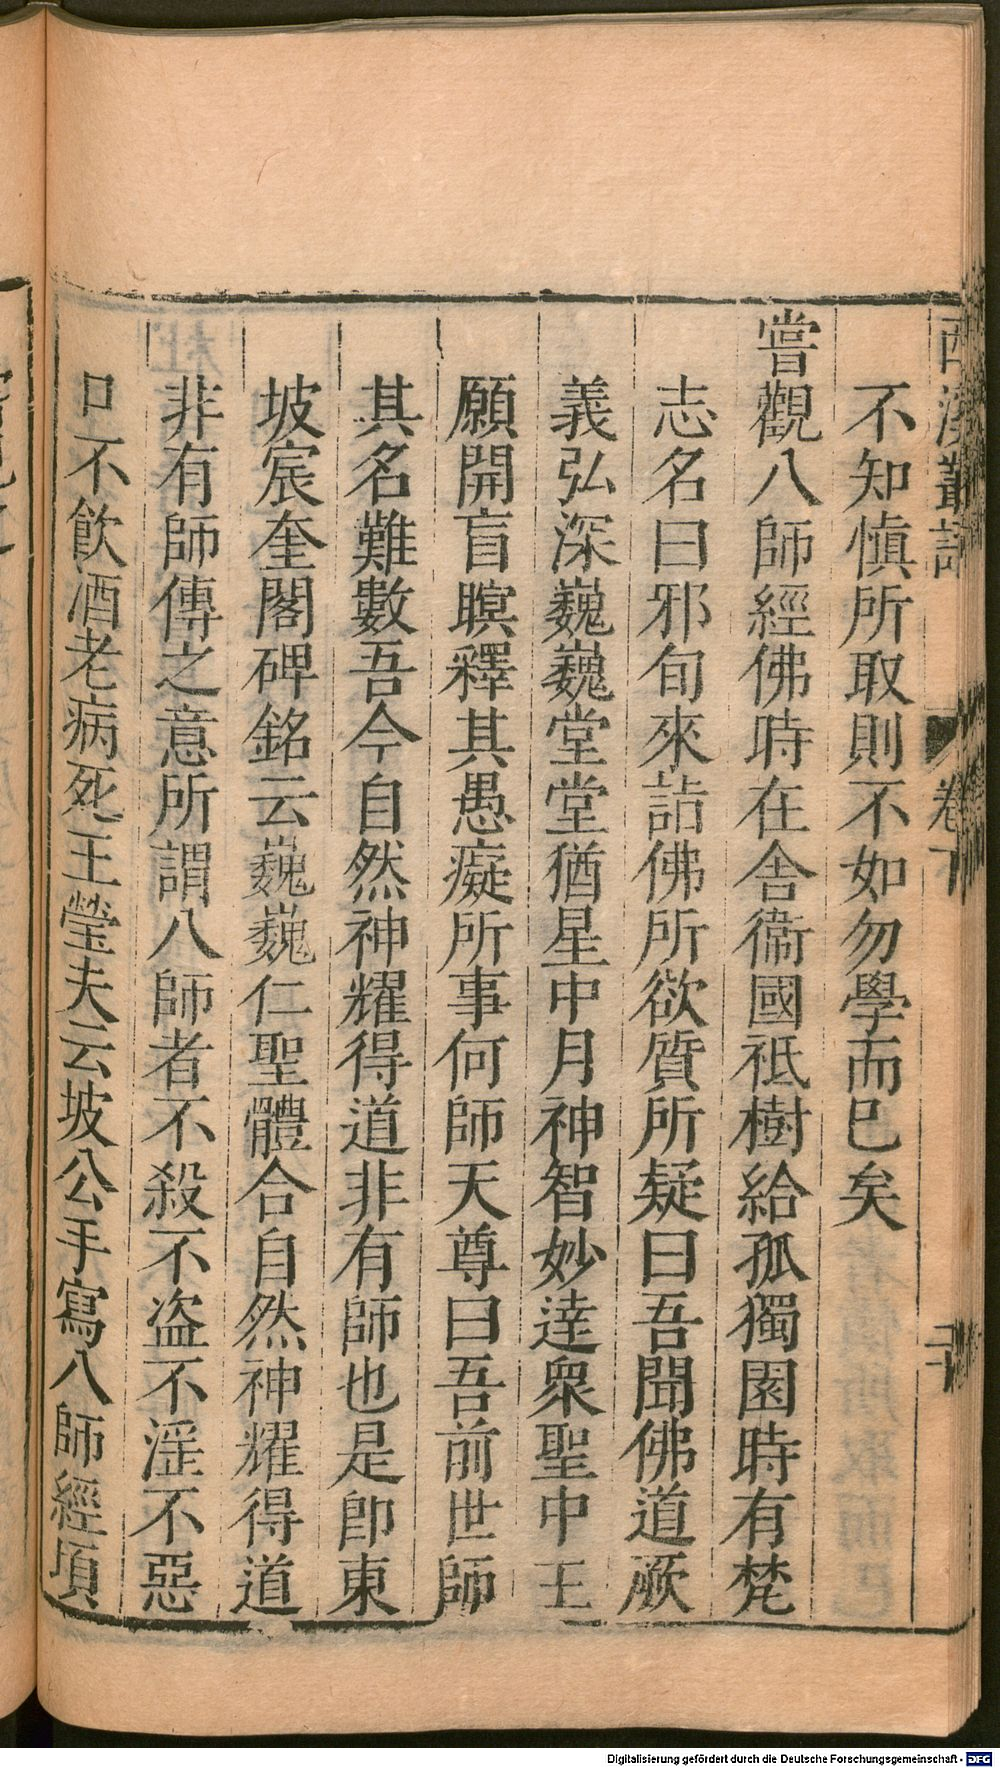 西溪叢語 卷下
不知慎所取則不如勿學而已矣
嘗觀八師經佛時在舎衞國祗樹給孤獨園時有梵
志名曰邪旬來詣佛所欲質所疑曰吾聞佛道厥
義弘深巍巍堂堂猶星中月神智妙達衆聖中王
願開盲瞑釋其愚癡所事何師天尊曰吾前世師
其名難數吾今自然神耀得道非有師也是卽東
坡宸奎閣碑銘云巍巍仁聖體合自然神耀得道
非有師傳之意所謂八師者不殺不盗不淫不惡
口不飲酒老病死王瑩夫云坡公手寫八師經頃
Digitalisierung gefördert durch die Deutsche Forschungsgemeinschaft - DFG